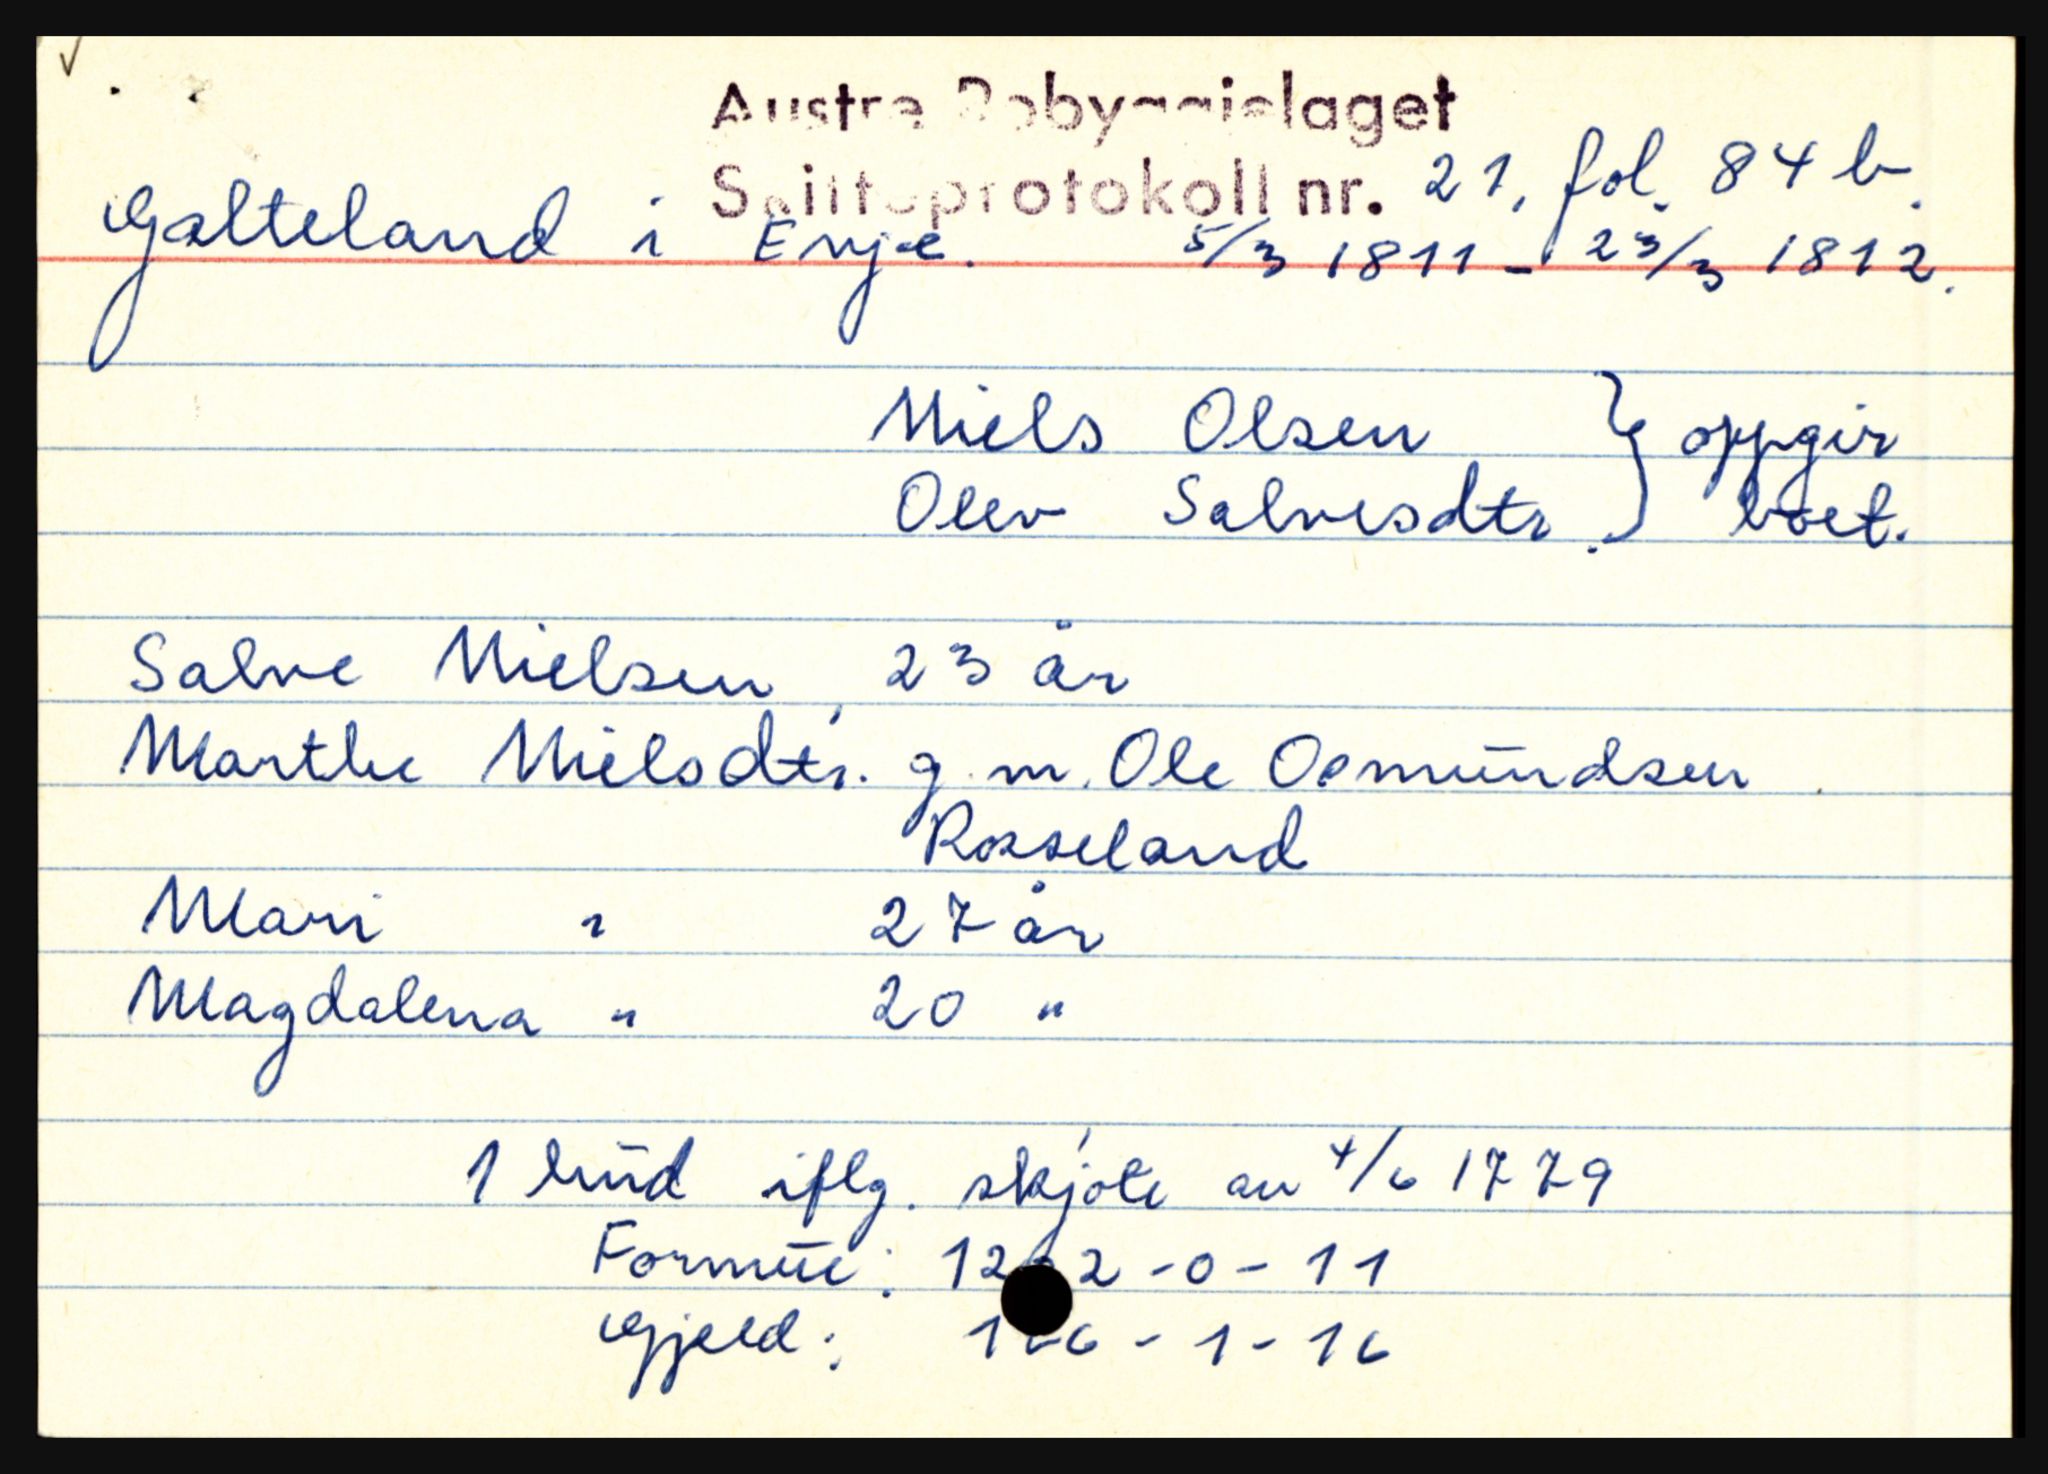 Austre Robyggjelaget
Skifteprotokoll nr. 21, fol. 84 b.
Galteland i Evje. 5/3 1811 - 23/3 1812.
Niels Olsen } oppgir
Olev Salvesdtr. } boet.
Salve Nielsen, 23 år
Marthe Nielsdtr. g. m. Ole Osmundsen
Rosseland
Mari " 27 år
Magdalena " 20 "
1 hud iflg. skjøte av 4/6 1779
Formue: -0-11
Gjeld: -1-16